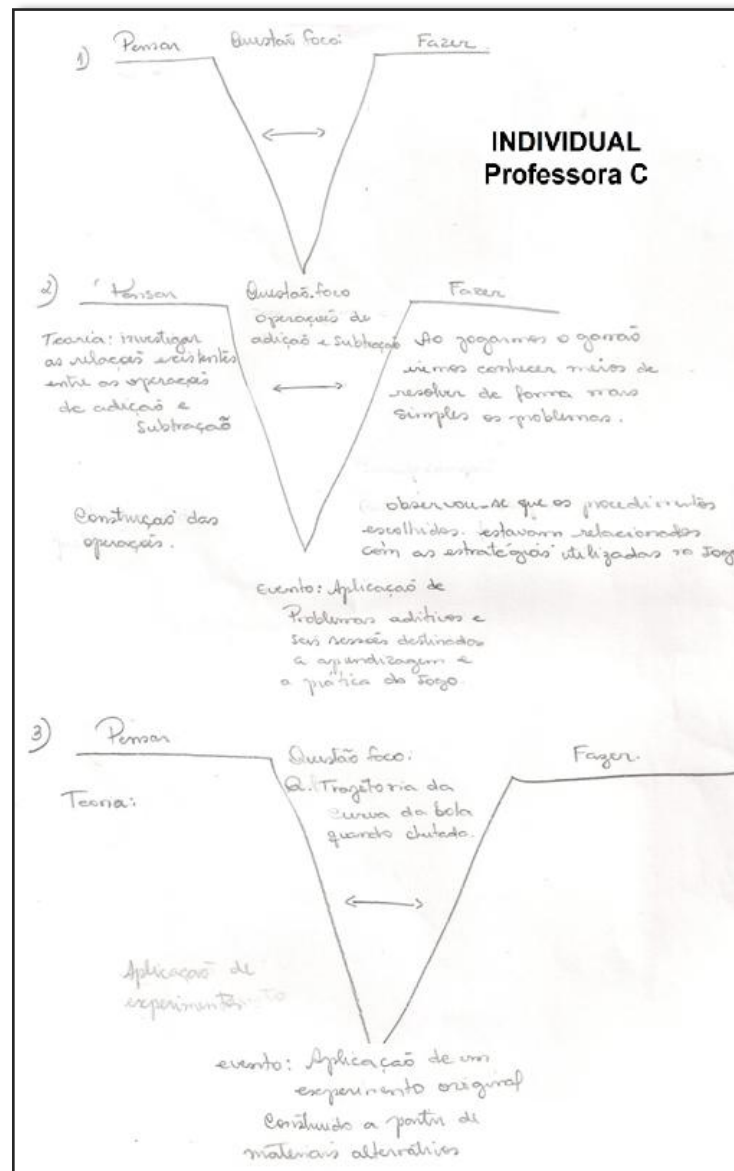 1) Pensar Questão foco: Fazer.
INDIVIDUAL
Professora C
2) Pensar Questão-foco Fazer
operações de
adição e subtração
Teoria: investigar
as relações existentes
entre as operações
de adição e
subtração
Ao jogarmos o gamão
iremos conhecer meios de
resolver de forma mais
simples os problemas.
Construção das
operações.
observou-se que os procedimentos
escolhidos. estavam relacionados
com as estratégias utilizadas no Jogo
evento: Aplicação de
Problemas aditivos e
seis sessões destinados
a aprendizagem e
a prática do Jogo.
3) Pensar Questão foco: Fazer.
Q. Trajetoria da
curva da bola
quando chutada.
Teoria:
Aplicação de
experimento
evento: Aplicação de um
experimento original
Construido a partir de
materiais alternativos